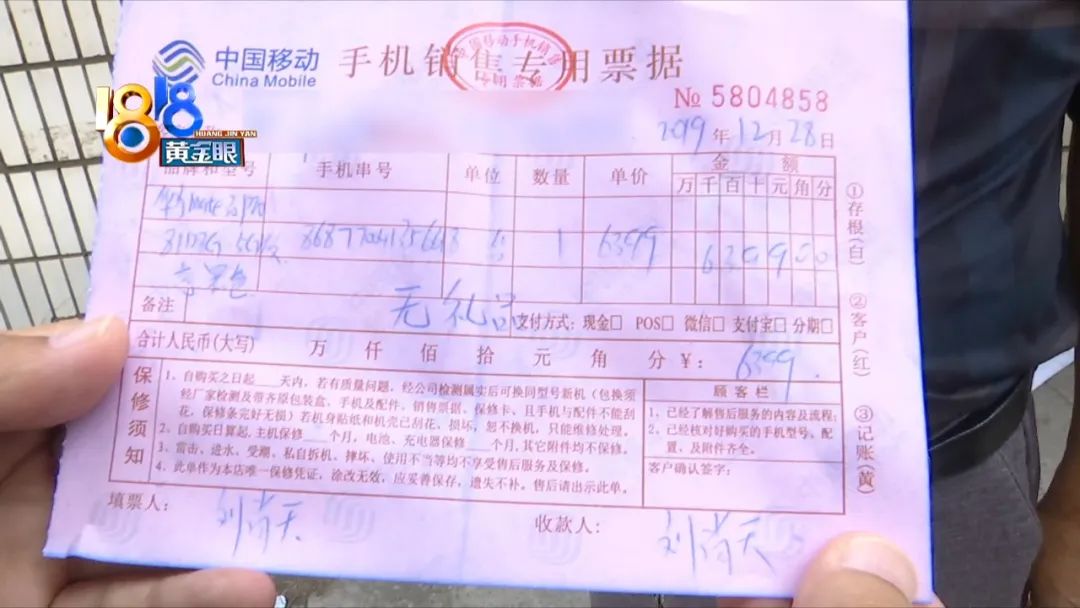 中国移动
China Mobile
手机销售专用票据
中国移动手机销售
专用票据
1818
HUANG JIN YAN
黄金眼
№ 5804858
2019年12月28日
品牌和型号 手机串号 单位 数量 单价 金额
万 千 百 十 元 角 分
华为mate 30 pro
8+128G 5G 台 1 6399 6399 00
亮黑色
备注 无礼品 支付方式：现金□ POS□ 微信□ 支付宝□ 分期□
合计人民币(大写) 万 仟 佰 拾 元 角 分 ¥： 6399
保修须知
1、自购买之日起___天内，若有质量问题，经公司检测属实后可换同型号新机（包换须
经厂家检测及带齐原包装盒、手机及配件、销售票据、保修卡、且手机与配件不能刮
花，保修条完好无损）若机身贴纸和机壳已刮花、损坏、恕不换机，只能维修处理。
2、自购买日算起，主机保修___个月，电池、充电器保修___个月，其它附件均不保修。
3、雷击、进水、受潮、私自拆机、摔坏、使用不当等均不享受售后服务及保修。
4、此单作为本店唯一保修凭证，涂改无效，应妥善保存，遗失不补。售后请出示此单。
顾客栏
1、已经了解售后服务的内容及流程；
2、已经核对好购买的手机型号、配
置、及附件齐全。
客户确认签字：
①存根(白)
②客户(红)
③记账(黄)
填票人：
收款人：